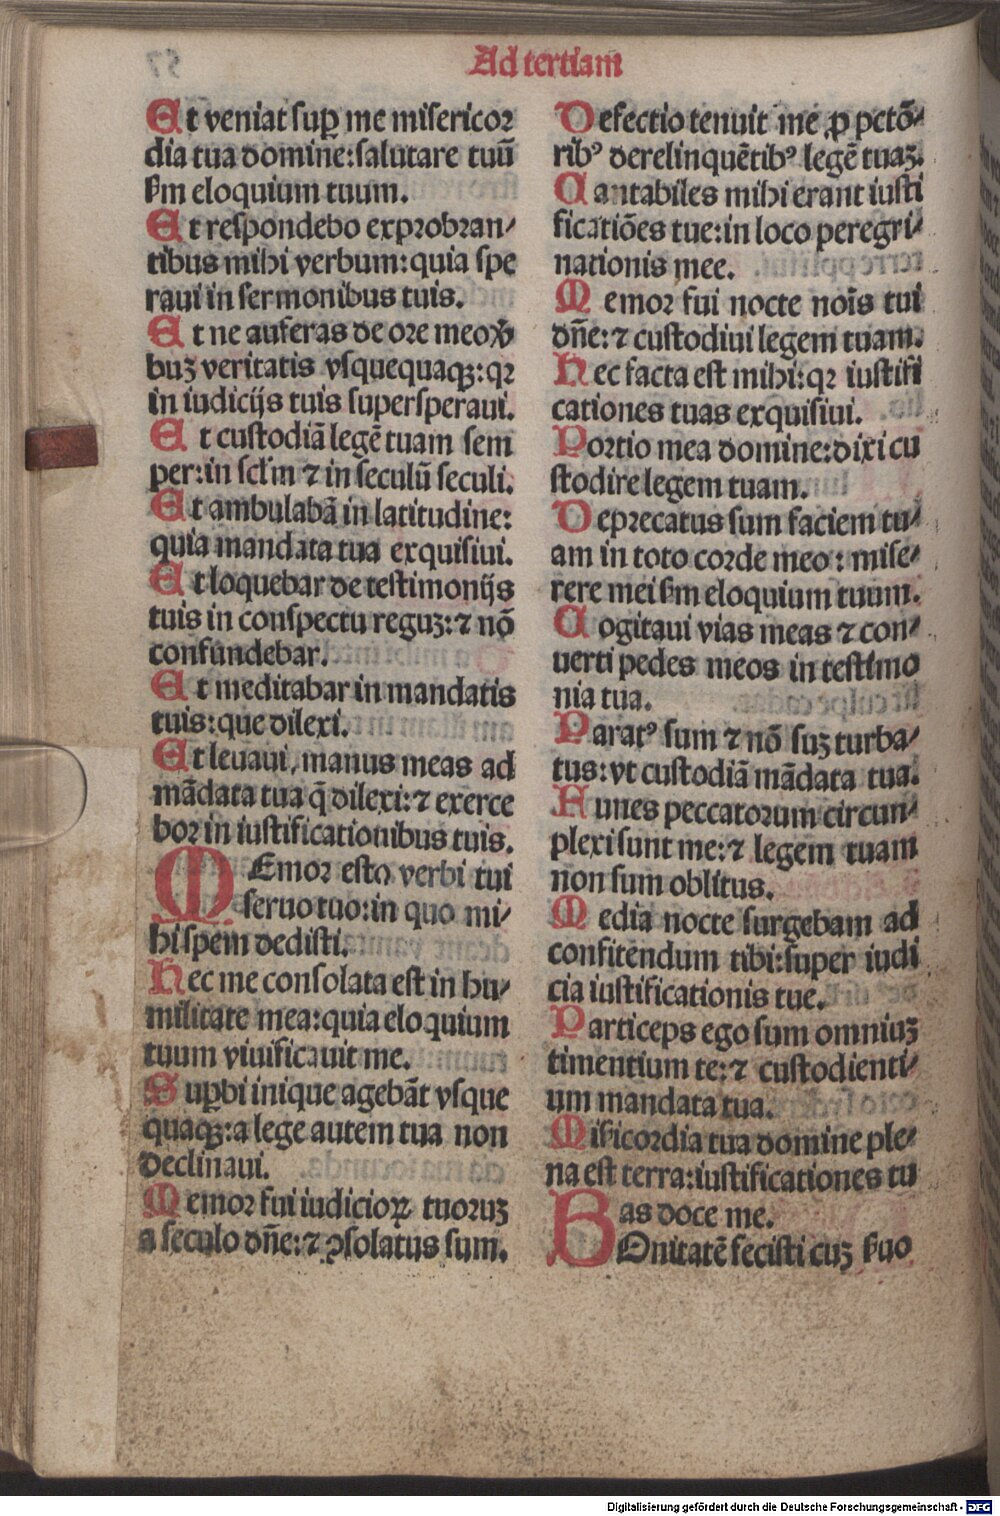 Ad tertiam
Et veniat sup̲ me misericor
dia tua domine: salutare tuū
ẜm eloquium tuum.
Et respondebo exprobran⸗
tibus mihi verbum: quia spe
raui in sermonibus tuis.
Et ne auferas de ore meo
buꝫ veritatis vsquequaqꝫ: qꝛ
in iudicijs tuis supersperaui.
Et custodiā legē tuam sem
per: in scl̄m ⁊ in seculū seculi.
Et ambulabā in latitudine:
quia mandata tua exquisiui.
Et loquebar de testimonijs
tuis in conspectu reguꝫ: ⁊ nō
confundebar.
Et meditabar in mandatis
tuis: que dilexi.
Et leuaui manus meas ad
mādata tua q̄ dilexi: ⁊ exerce
bor in iustificationibus tuis.
MEmor esto verbi tui
seruo tuo: in quo mi⸗
hi spem dedisti.
Hec me consolata est in hu⸗
militate mea: quia eloquium
tuum viuificauit me.
Sup̲bi inique agebāt vsque
quaqꝫ: a lege autem tua non
declinaui.
Memor fui iudicioꝝ tuoruꝫ
a seculo dn̄e: ⁊ ꝯsolatus sum.
Defectio tenuit me ꝓ pctō⸗
ribꝰ derelinquētibꝰ legē tuaꝫ.
Cantabiles mihi erant iusti
ficatiōes tue: in loco peregri⸗
nationis mee.
Memor fui nocte noīs tui
dn̄e: ⁊ custodiui legem tuam.
Hec facta est mihi: qꝛ iustifi
cationes tuas exquisiui.
Portio mea domine: dixi cu
stodire legem tuam.
Deprecatus sum faciem tu⸗
am in toto corde meo: mise⸗
rere mei ẜm eloquium tuum.
Cogitaui vias meas ⁊ con⸗
uerti pedes meos in testimo
nia tua.
Paratꝰ sum ⁊ nō suꝫ turba⸗
tus: vt custodiā mādata tua.
Funes peccatorum circun⸗
plexi sunt me: ⁊ legem tuam
non sum oblitus.
Media nocte surgebam ad
confitendum tibi: super iudi
cia iustificationis tue.
Particeps ego sum omniuꝫ
timentium te: ⁊ custodienti⸗
um mandata tua.
Mīsicordia tua domine ple⸗
na est terra: iustificationes tu
as doce me.
BOnitatē fecisti cuꝫ ẜuo
Digitalisierung gefördert durch die Deutsche Forschungsgemeinschaft - DFG